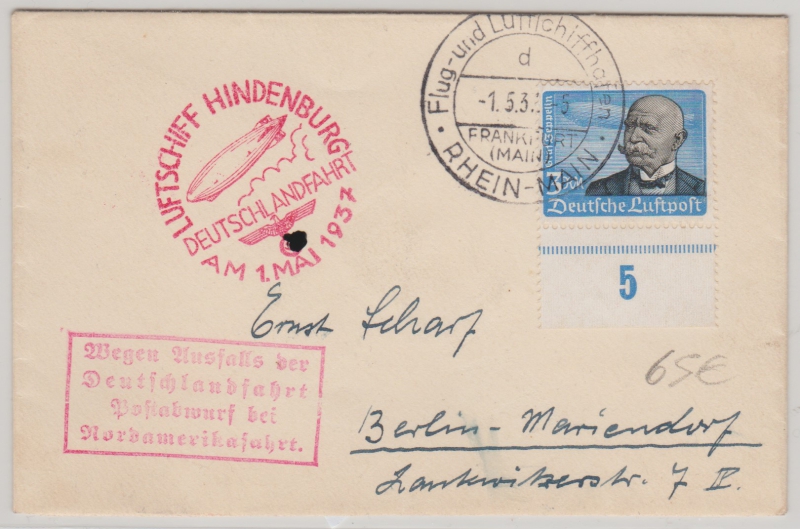 Flug- und Luftschiffhafen
d
-1.5.3
FRANKFURT
(MAIN)
· RHEIN-MAIN ·
Deutsche Luftpost
5
LUFTSCHIFF HINDENBURG
DEUTSCHLANDFAHRT
AM 1. MAI 1937
Ernst Scharf
Wegen Ausfalls der
Deutschlandfahrt
Postabwurf bei
Nordamerikafahrt.
65€
Berlin-Mariendorf
Lankwitzerstr. 7 IV.